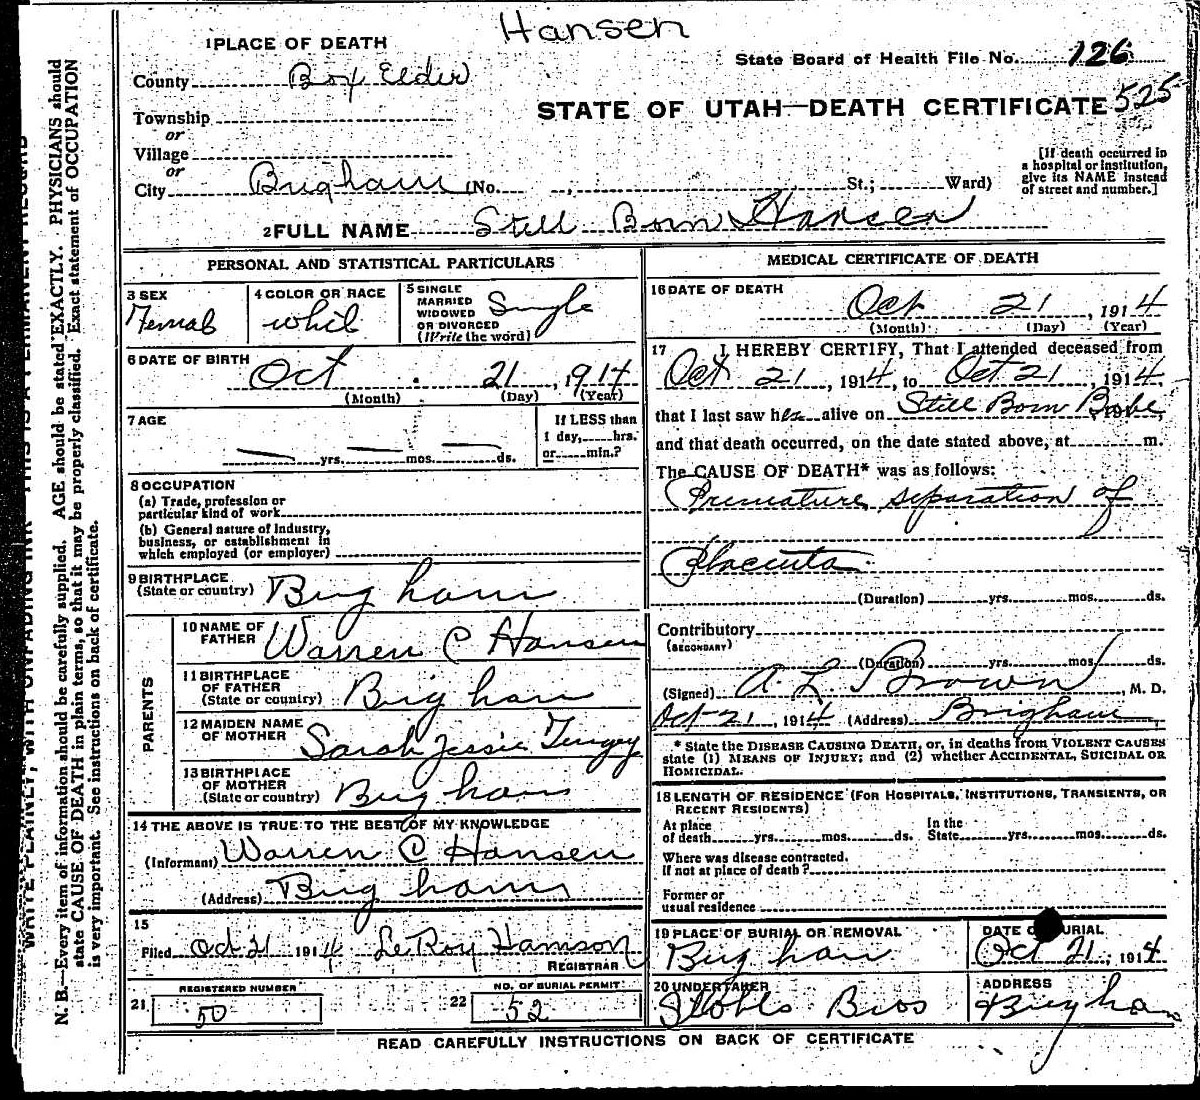 Hansen
1 PLACE OF DEATH
State Board of Health File No. 126
County Box Elder
STATE OF UTAH—DEATH CERTIFICATE 525
Township
or
Village
or
City Brigham (No. , St.; Ward)
[If death occurred in
a hospital or institution,
give its NAME instead
of street and number.]
2 FULL NAME Still Born Hansen
PERSONAL AND STATISTICAL PARTICULARS
3 SEX
Femal
4 COLOR OR RACE
whit
5 SINGLE
MARRIED
WIDOWED
OR DIVORCED
(Write the word)
Single
6 DATE OF BIRTH
Oct 21, 1914
(Month) (Day) (Year)
7 AGE
yrs. mos. ds.
If LESS than
1 day, hrs.
or min.?
8 OCCUPATION
(a) Trade, profession or
particular kind of work
(b) General nature of industry,
business, or establishment in
which employed (or employer)
9 BIRTHPLACE
(State or country) Brigham
PARENTS
10 NAME OF
FATHER Warren C Hansen
11 BIRTHPLACE
OF FATHER
(State or country) Brigham
12 MAIDEN NAME
OF MOTHER Sarah Jessie Tingey
13 BIRTHPLACE
OF MOTHER
(State or country) Brigham
14 THE ABOVE IS TRUE TO THE BEST OF MY KNOWLEDGE
(Informant) Warren C Hansen
(Address) Brigham
15
Filed Oct 21 1914 LeRoy Hamson
REGISTRAR
21 REGISTERED NUMBER
50
22 NO. OF BURIAL PERMIT
52
MEDICAL CERTIFICATE OF DEATH
16 DATE OF DEATH
Oct 21, 1914
(Month) (Day) (Year)
17 I HEREBY CERTIFY, That I attended deceased from
Oct 21, 1914, to Oct 21, 1914,
that I last saw her alive on Still Born Babe,
and that death occurred, on the date stated above, at m.
The CAUSE OF DEATH* was as follows:
Premature separation of
Placenta
(Duration) yrs. mos. ds.
Contributory
(SECONDARY)
(Duration) yrs. mos. ds.
(Signed) A L Brown, M. D.
Oct 21, 1914 (Address) Brigham
* State the DISEASE CAUSING DEATH, or, in deaths from VIOLENT CAUSES
state (1) MEANS OF INJURY; and (2) whether ACCIDENTAL, SUICIDAL OR
HOMICIDAL.
18 LENGTH OF RESIDENCE (FOR HOSPITALS, INSTITUTIONS, TRANSIENTS, OR
RECENT RESIDENTS)
At place
of death yrs. mos. ds.
In the
State yrs. mos. ds.
Where was disease contracted,
if not at place of death?
Former or
usual residence
19 PLACE OF BURIAL OR REMOVAL
Brigham
DATE OF BURIAL
Oct 21, 1914
20 UNDERTAKER
Bros
ADDRESS
Brigham
READ CAREFULLY INSTRUCTIONS ON BACK OF CERTIFICATE
WRITE PLAINLY, WITH UNFADING INK—THIS IS A PERMANENT RECORD
N. B.—Every item of information should be carefully supplied. AGE should be stated EXACTLY. PHYSICIANS should
state CAUSE OF DEATH in plain terms, so that it may be properly classified. Exact statement of OCCUPATION
is very important. See instructions on back of certificate.